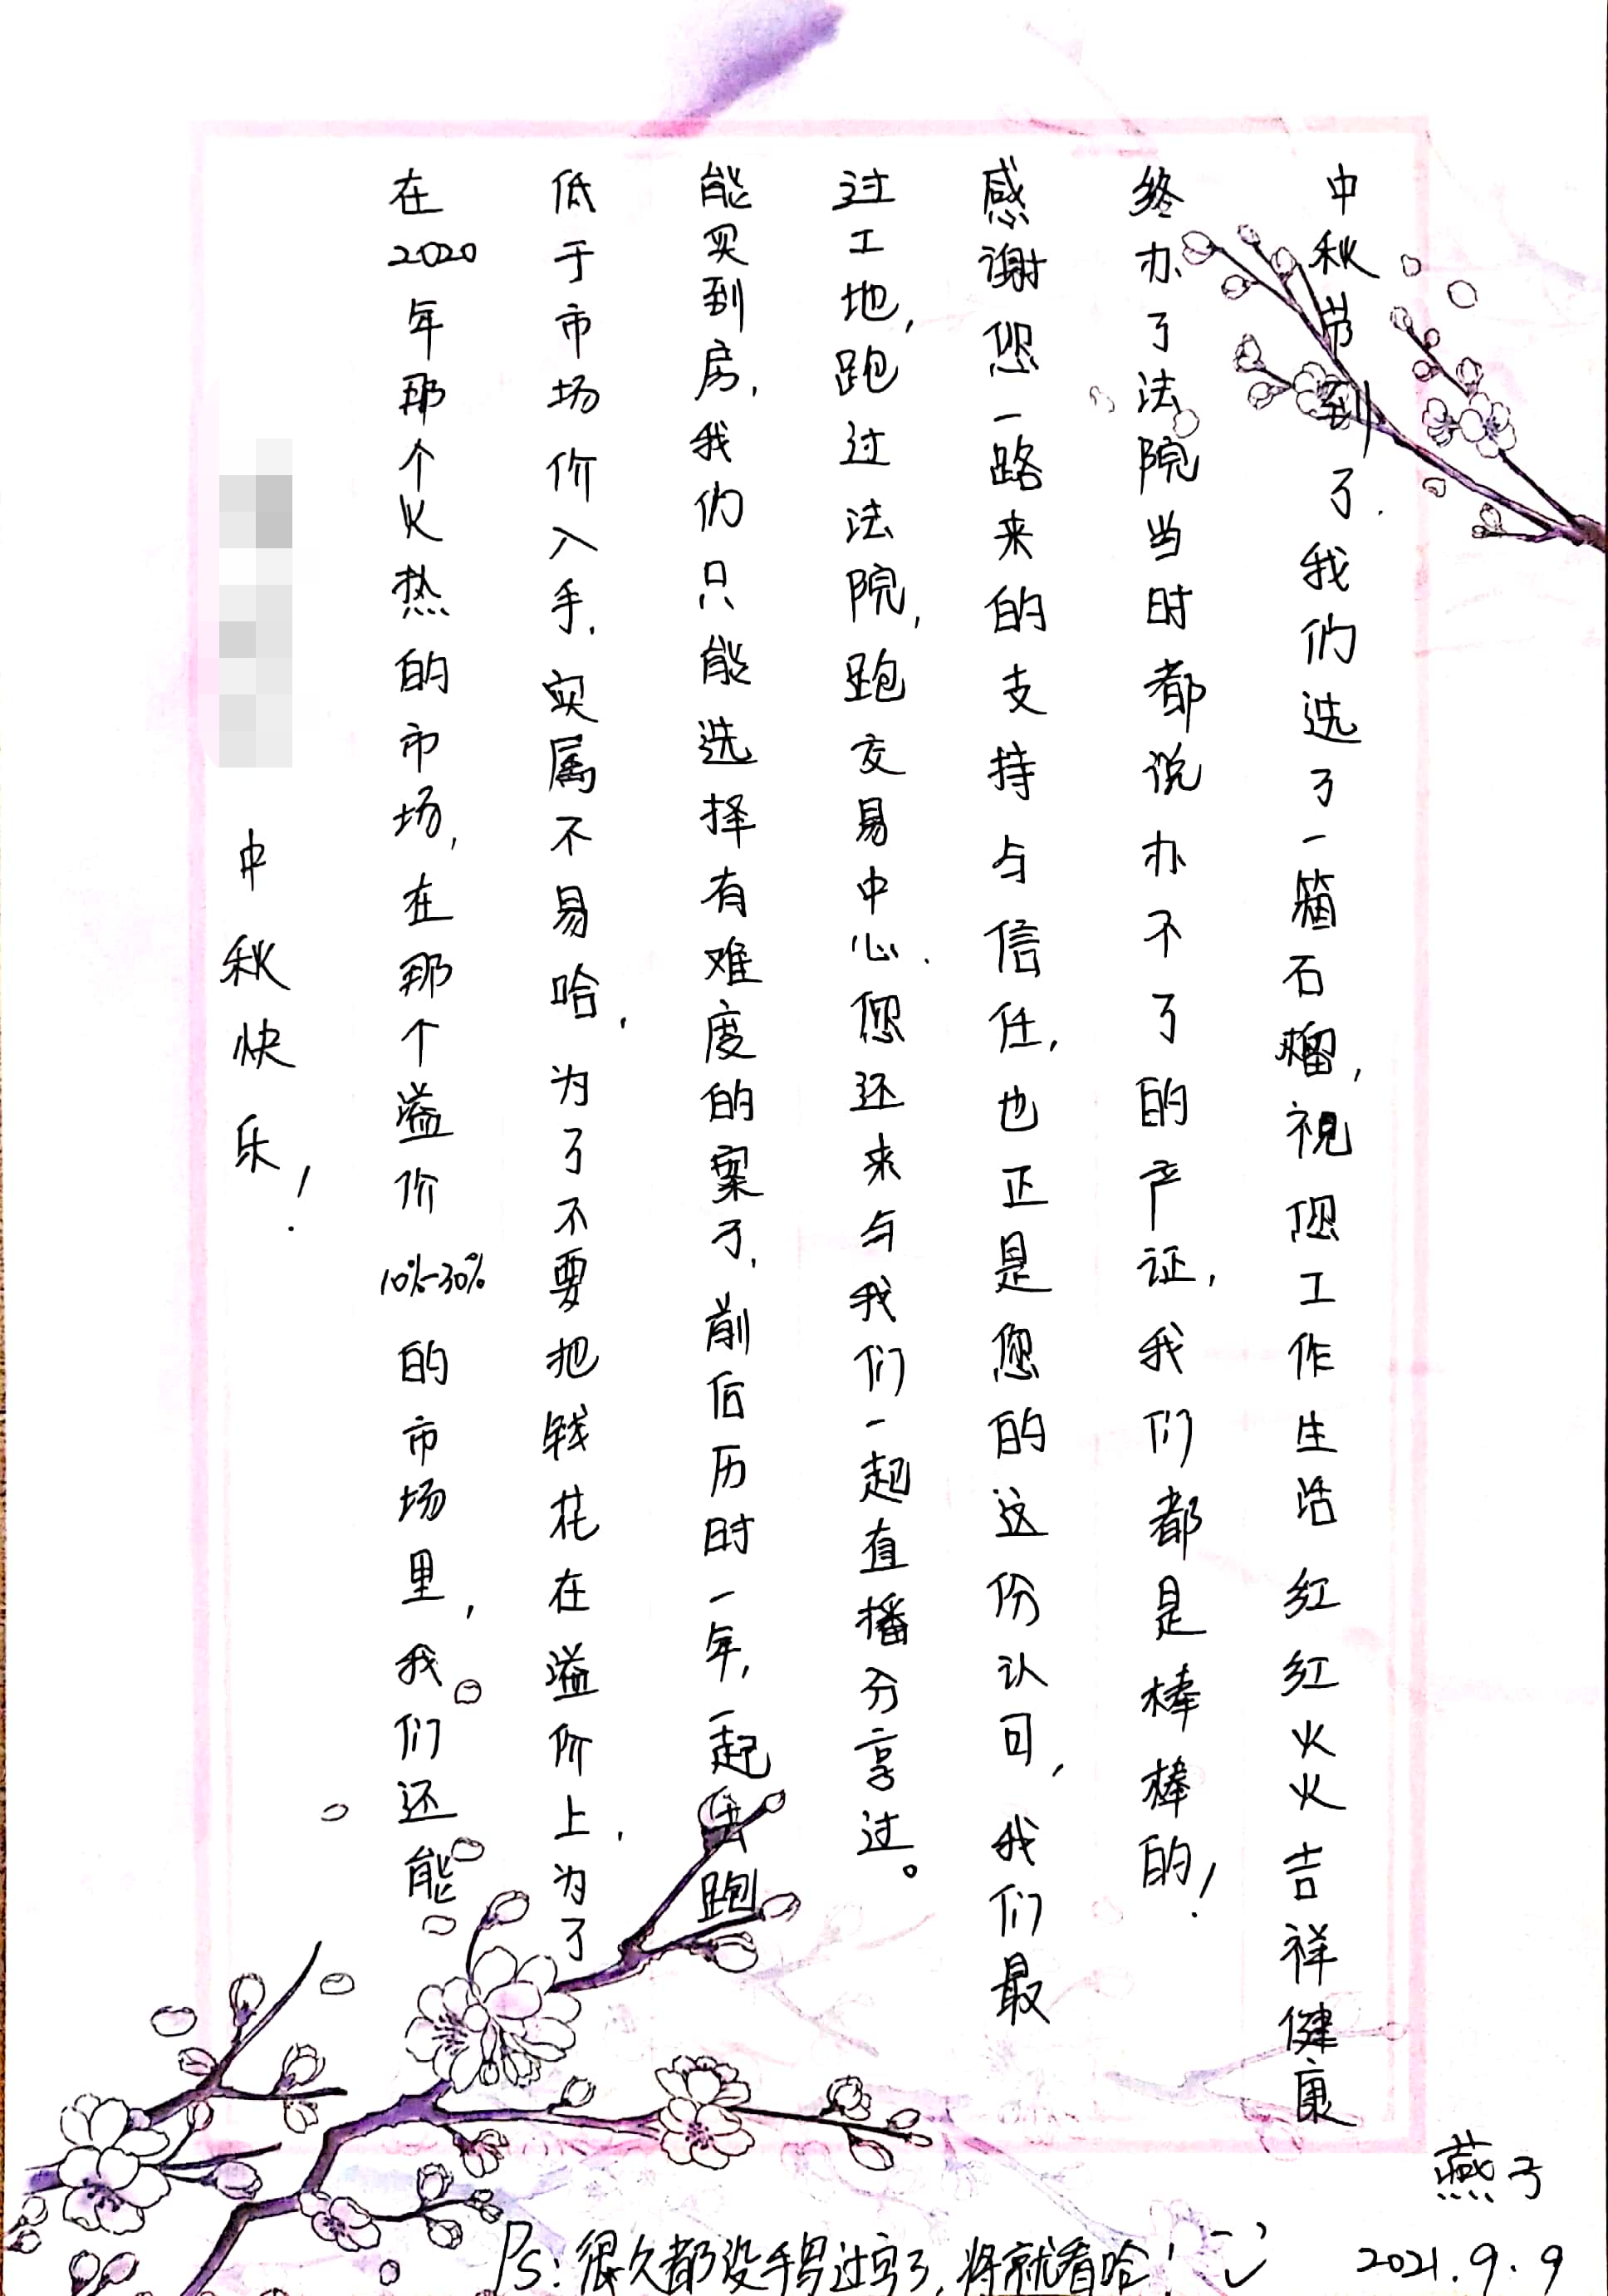 中秋快乐！
在2020年那个火热的市场，在那个溢价10%-30%的市场里，我们还能
低于市场价入手.实属不易哈，为了不要把钱花在溢价上.为了
能买到房，我们只能选择有难度的案子.前后历时一年，一起去跑
过工地，跑过法院，跑交易中心.您还来与我们一起直播分享过。
感谢您一路来的支持与信任，也正是您的这份认可，我们最
终办了法院当时都说办不了的产证，我们都是棒棒的！
中秋节到了.我们选了一箱石榴，祝您工作生活红红火火吉祥健康
燕子
2021.9.9
Ps：很久都没手写过字了，将就看哈！